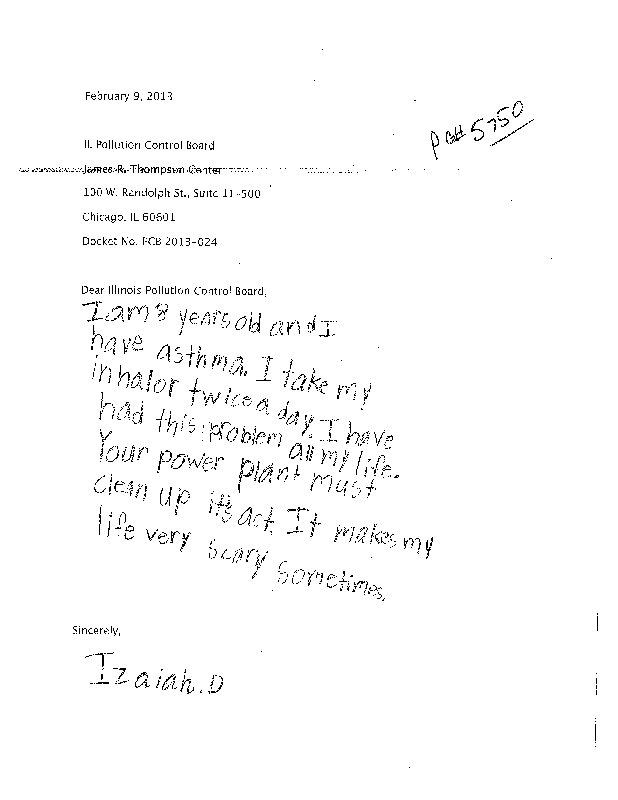 February 9, 2013
PC# 5750
IL Pollution Control Board
James R. Thompson Center
100 W. Randolph St., Suite 11-500
Chicago, IL 60601
Docket No. PCB 2013-024
Dear Illinois Pollution Control Board,
I am 8 years old and I
have asthma. I take my
inhalor twice a day. I have
had this problem all my life.
Your power plant must
clean up it's act. It makes my
life very scary sometimes.
Sincerely,
Izaiah.D